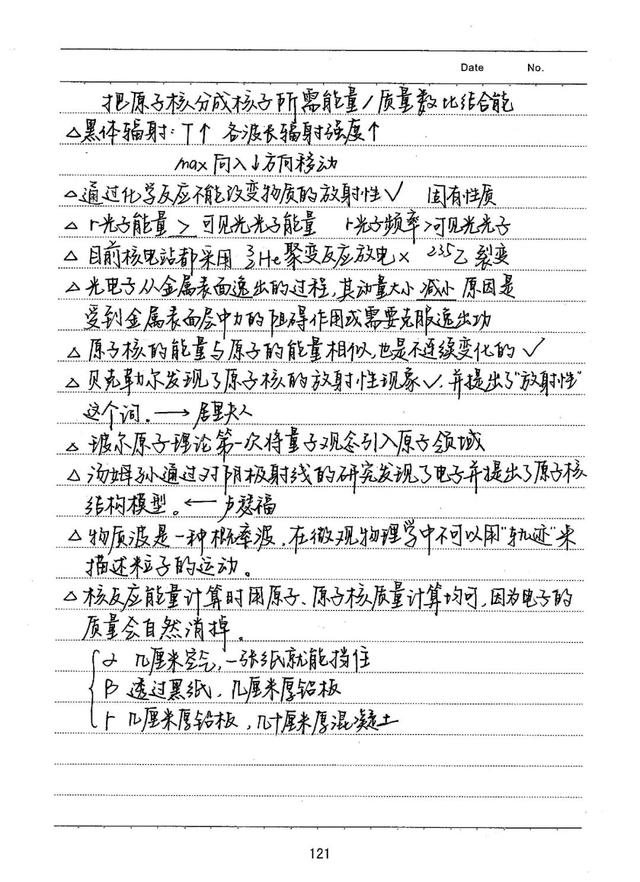 Date No.
把原子核分成核子所需能量/质量数 比结合能
△黑体辐射:T↑ 各波长辐射强度↑
max向λ↓方向移动
△通过化学反应不能改变物质的放射性✓ 固有性质
△r光子能量 > 可见光光子能量 r光子频率>可见光光子
△目前核电站都采用 ³₂He聚变反应放电× ²³⁵U 裂变
△光电子从金属表面逸出的过程,其动量大小 减小 原因是
受到金属表面层中力的阻碍作用或需要克服逸出功
△原子核的能量与原子的能量相似,也是不连续变化的✓
△贝克勒尔发现了原子核的放射性现象✓,并提出了"放射性"
这个词。→居里夫人
△玻尔原子理论第一次将量子观念引入原子领域
△汤姆孙通过对阴极射线的研究发现了电子并提出了原子核
结构模型。←卢瑟福
△物质波是一种概率波,在微观物理学中不可以用"轨迹"来
描述粒子的运动。
△核反应能量计算时用原子、原子核质量计算均可,因为电子的
质量会自然消掉。
α 几厘米空气,一张纸就能挡住
β 透过黑纸,几厘米厚铝板
r 几厘米厚铅板,几十厘米厚混凝土
121